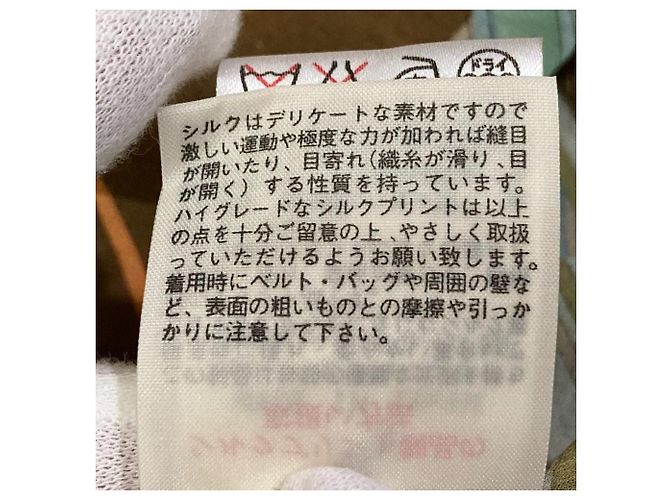 ドライ
シルクはデリケートな素材ですので
激しい運動や極度な力が加われば縫目
が開いたり、目寄れ(織糸が滑り、目
が開く)する性質を持っています。
ハイグレードなシルクプリントは以上
の点を十分ご留意の上、やさしく取扱
っていただけるようお願い致します。
着用時にベルト・バッグや周囲の壁な
ど、表面の粗いものとの摩擦や引っか
かりに注意して下さい。